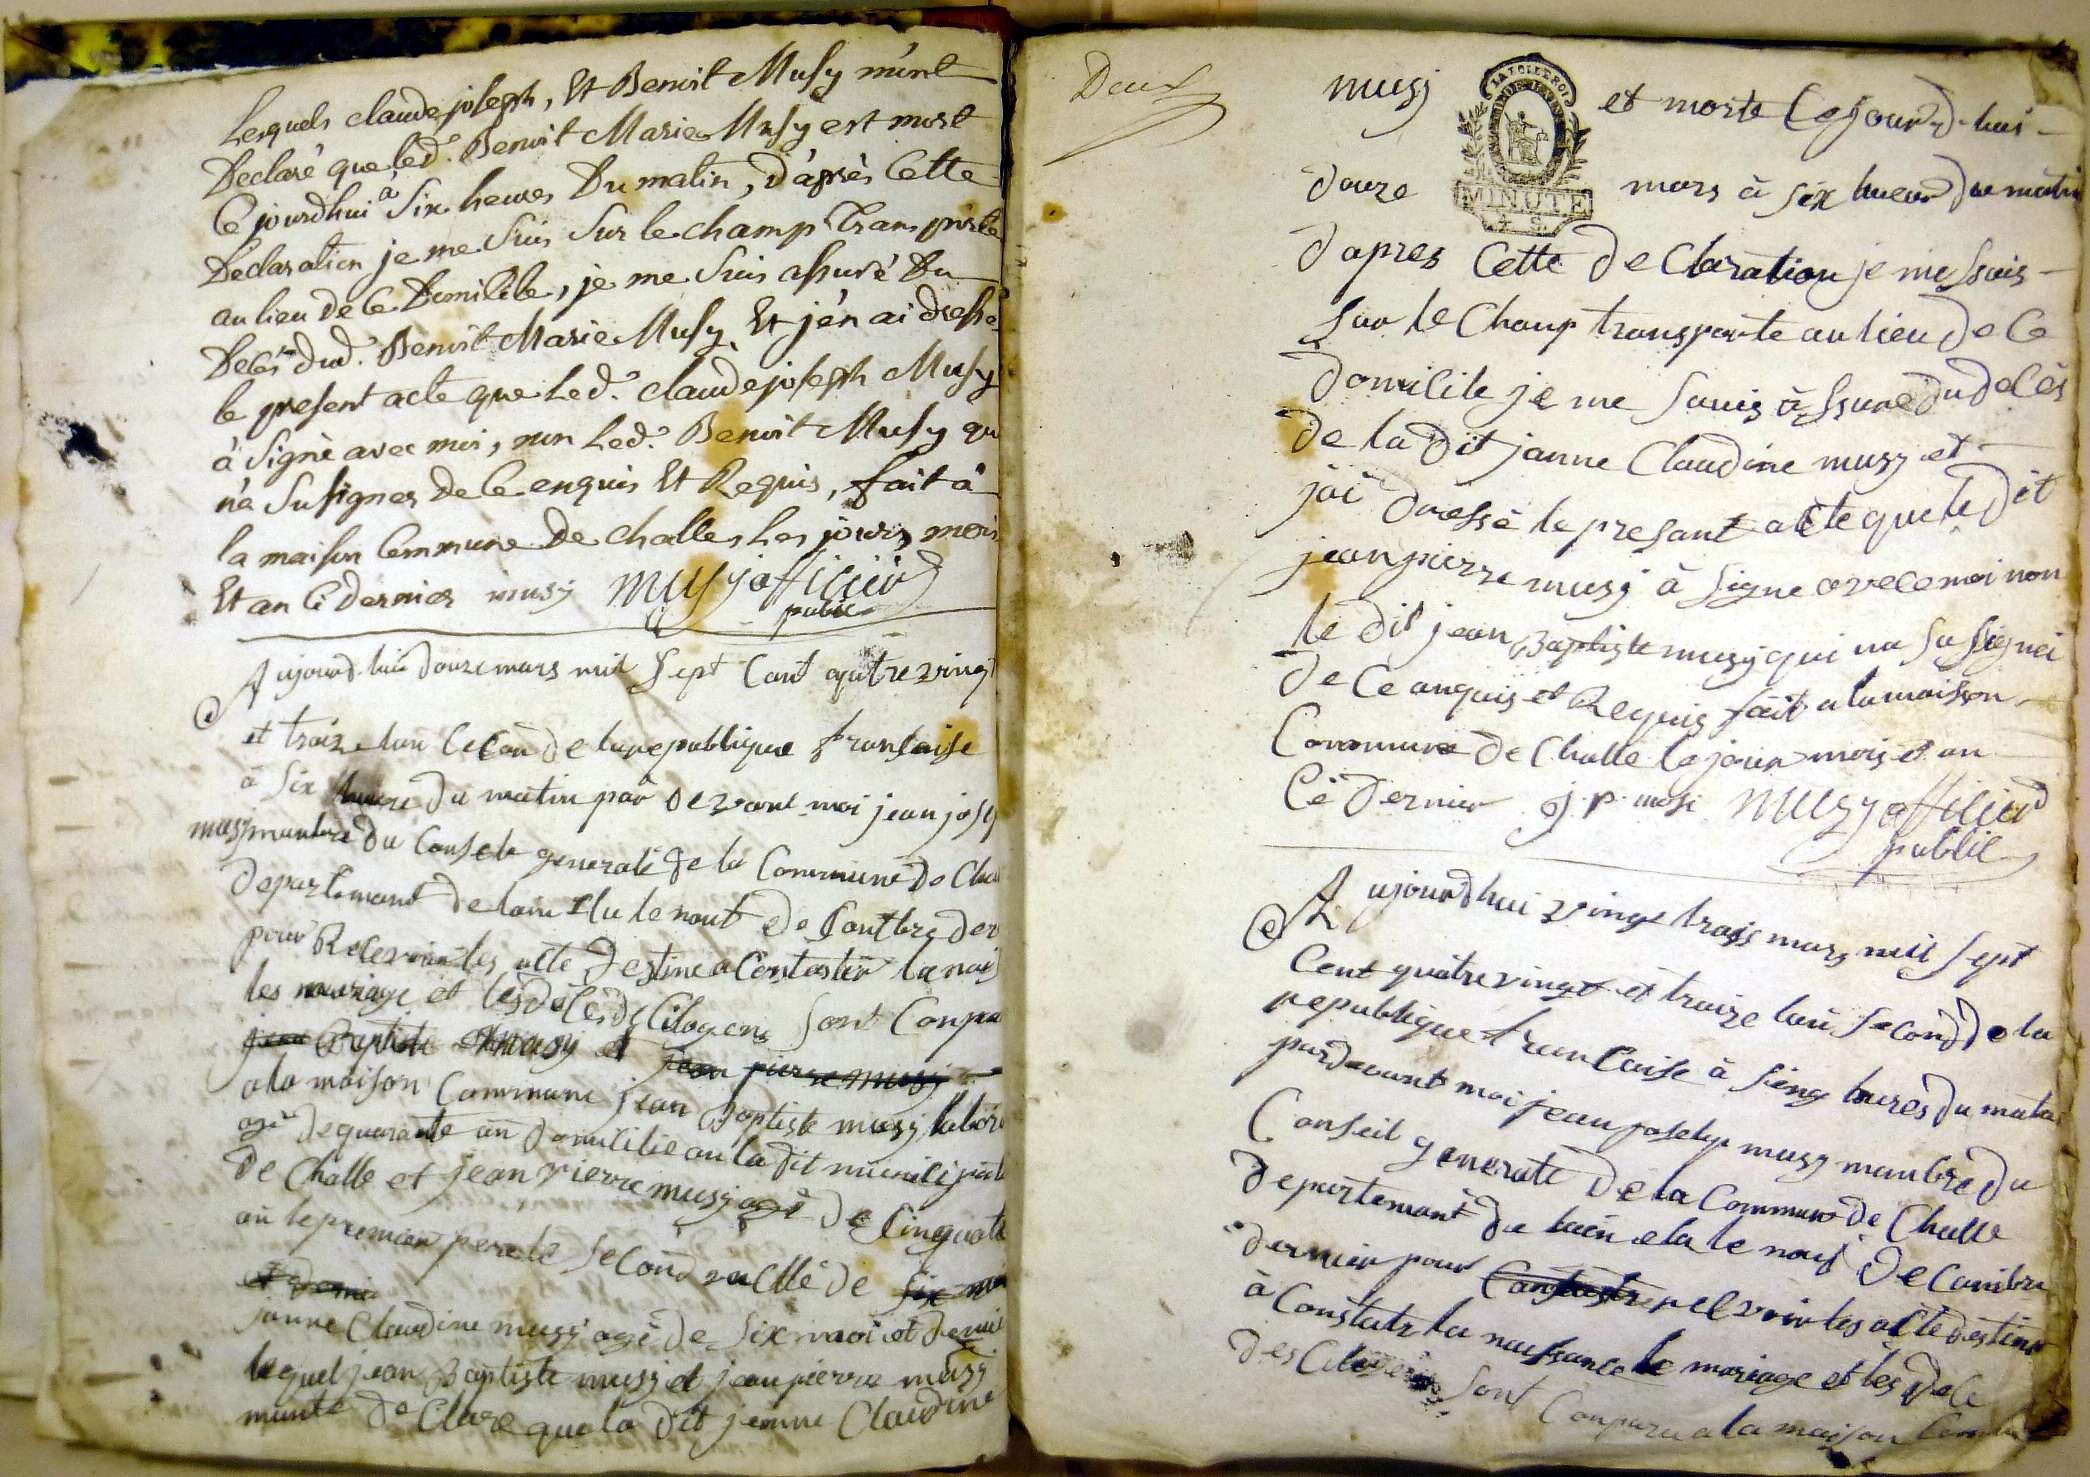 Lesquels claude joseph, Et Benoit Musy m'ont
Declaré que led. Benoit Marie Musy est mort
Ce jourdhui à Six heures Du matin, D'après Cette
Declaration je me Suis Sur le champ Transporté
au lieu de Ce Domicile, je me Suis assuré Du
Decès dud. Benoit Marie Musy, Et j'en ai dressé
le present acte que Led. claude joseph Musy
à Signé avec moi, non Led. Benoit Musy qui
n'a Su signer De Ce enquis Et Requis, fait à
la maison Commune De Challes Les jours, mois
Et an Ci dernier musy musy officier
public
Aujourd huis douze mars mil Sept Cant quatre vingt
et traize lan Second de la republique francaise
à Six heure du matin par devant moi jean josep
musy manbre du Conseile generale de la Commune de Chal
departemant de lain Elu le nouf de Santbre der
pour Recevoir les acte destine a Contaster la nais
les mariage et les déces des Citoyens Sont Conpa
jean Baptiste musy et jean pierre musy
a la maison Commune jean Baptiste musy labor
agé de quarante an domicilie an la dit municipal
de Challe et jean pierre musy agé de Cinquate
an le premier pere le Second oncle de six moi
et demi
janne Claudine musy agé de Six moi et demi
lequel jean Baptiste musy et jean pierre musy
mante de Clare que la dit jeanne Claudine
Deux
musy et morte Cejourd-hui
LA LOI ET LE ROI
MINUTE
4 S.
douze mars à six hueur du matin
dapres Cette de Claration je me suis
Sur le Chanp transporte au lieu de Ce
domicile je me Suuis àssure du decès
de la dit janne Claudine musy et
jai dressé le presant acte que le dit
jean pierre musy à Signe avece moi non
le dit jean Baptiste musy qui na Su signei
de Ce anquis et Requis fait a la maison
Commune de Challe le jour mois et an
Cé dernier j. p. musi musy officier
public
Aujourdhui vingt trois mars mil Sept
Cent quatre vingt et traize lan Second de la
republique francaise à Sinq heures du matin
pardevant moi jean joseph musy manbre du
Conseil generale de la Commune de Challe
departemant de lain elu le nouf de Canibre
dernier pour Contaster recevoir les acte destine
à Constate la naissance le mariage et les déce
des Citoyens Sont Conparu a la maison Comm